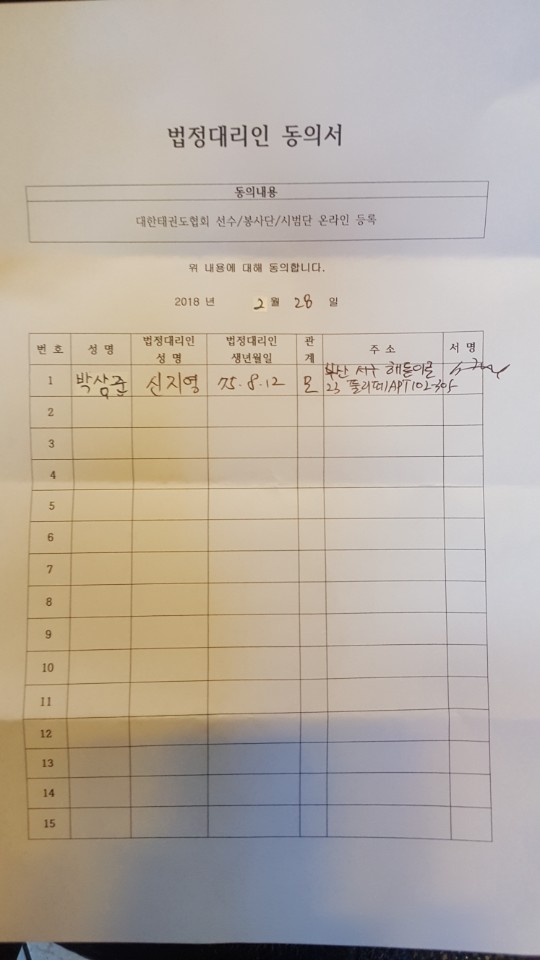 법정대리인 동의서
동의내용
대한태권도협회 선수/봉사단/시범단 온라인 등록
위 내용에 대해 동의합니다.
2018 년 2 월 28 일
번 호 성 명 법정대리인 성 명 법정대리인 생년월일 관 계 주 소 서 명
1 박삼준 신지영 75.8.12 모 부산 서구 해돋이로
23 APT 102-305
2
3
4
5
6
7
8
9
10
11
12
13
14
15